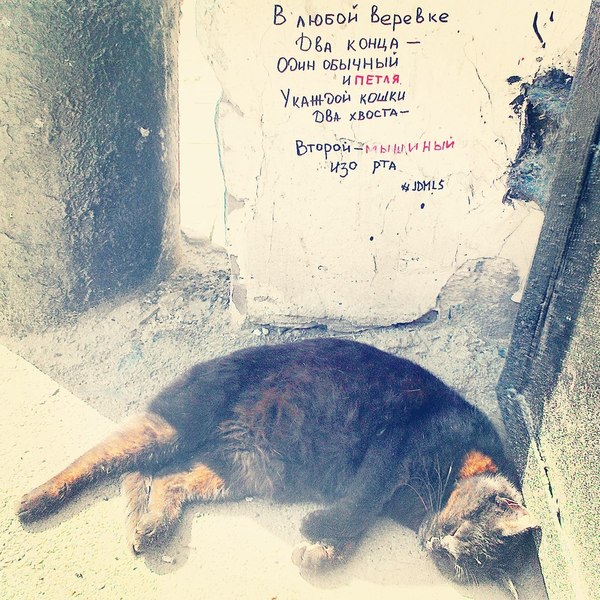 В любой верёвке
Два конца —
Один обычный
и петля.
У каждой кошки
Два хвоста —
Второй — мышиный
изо рта
#JDMLS